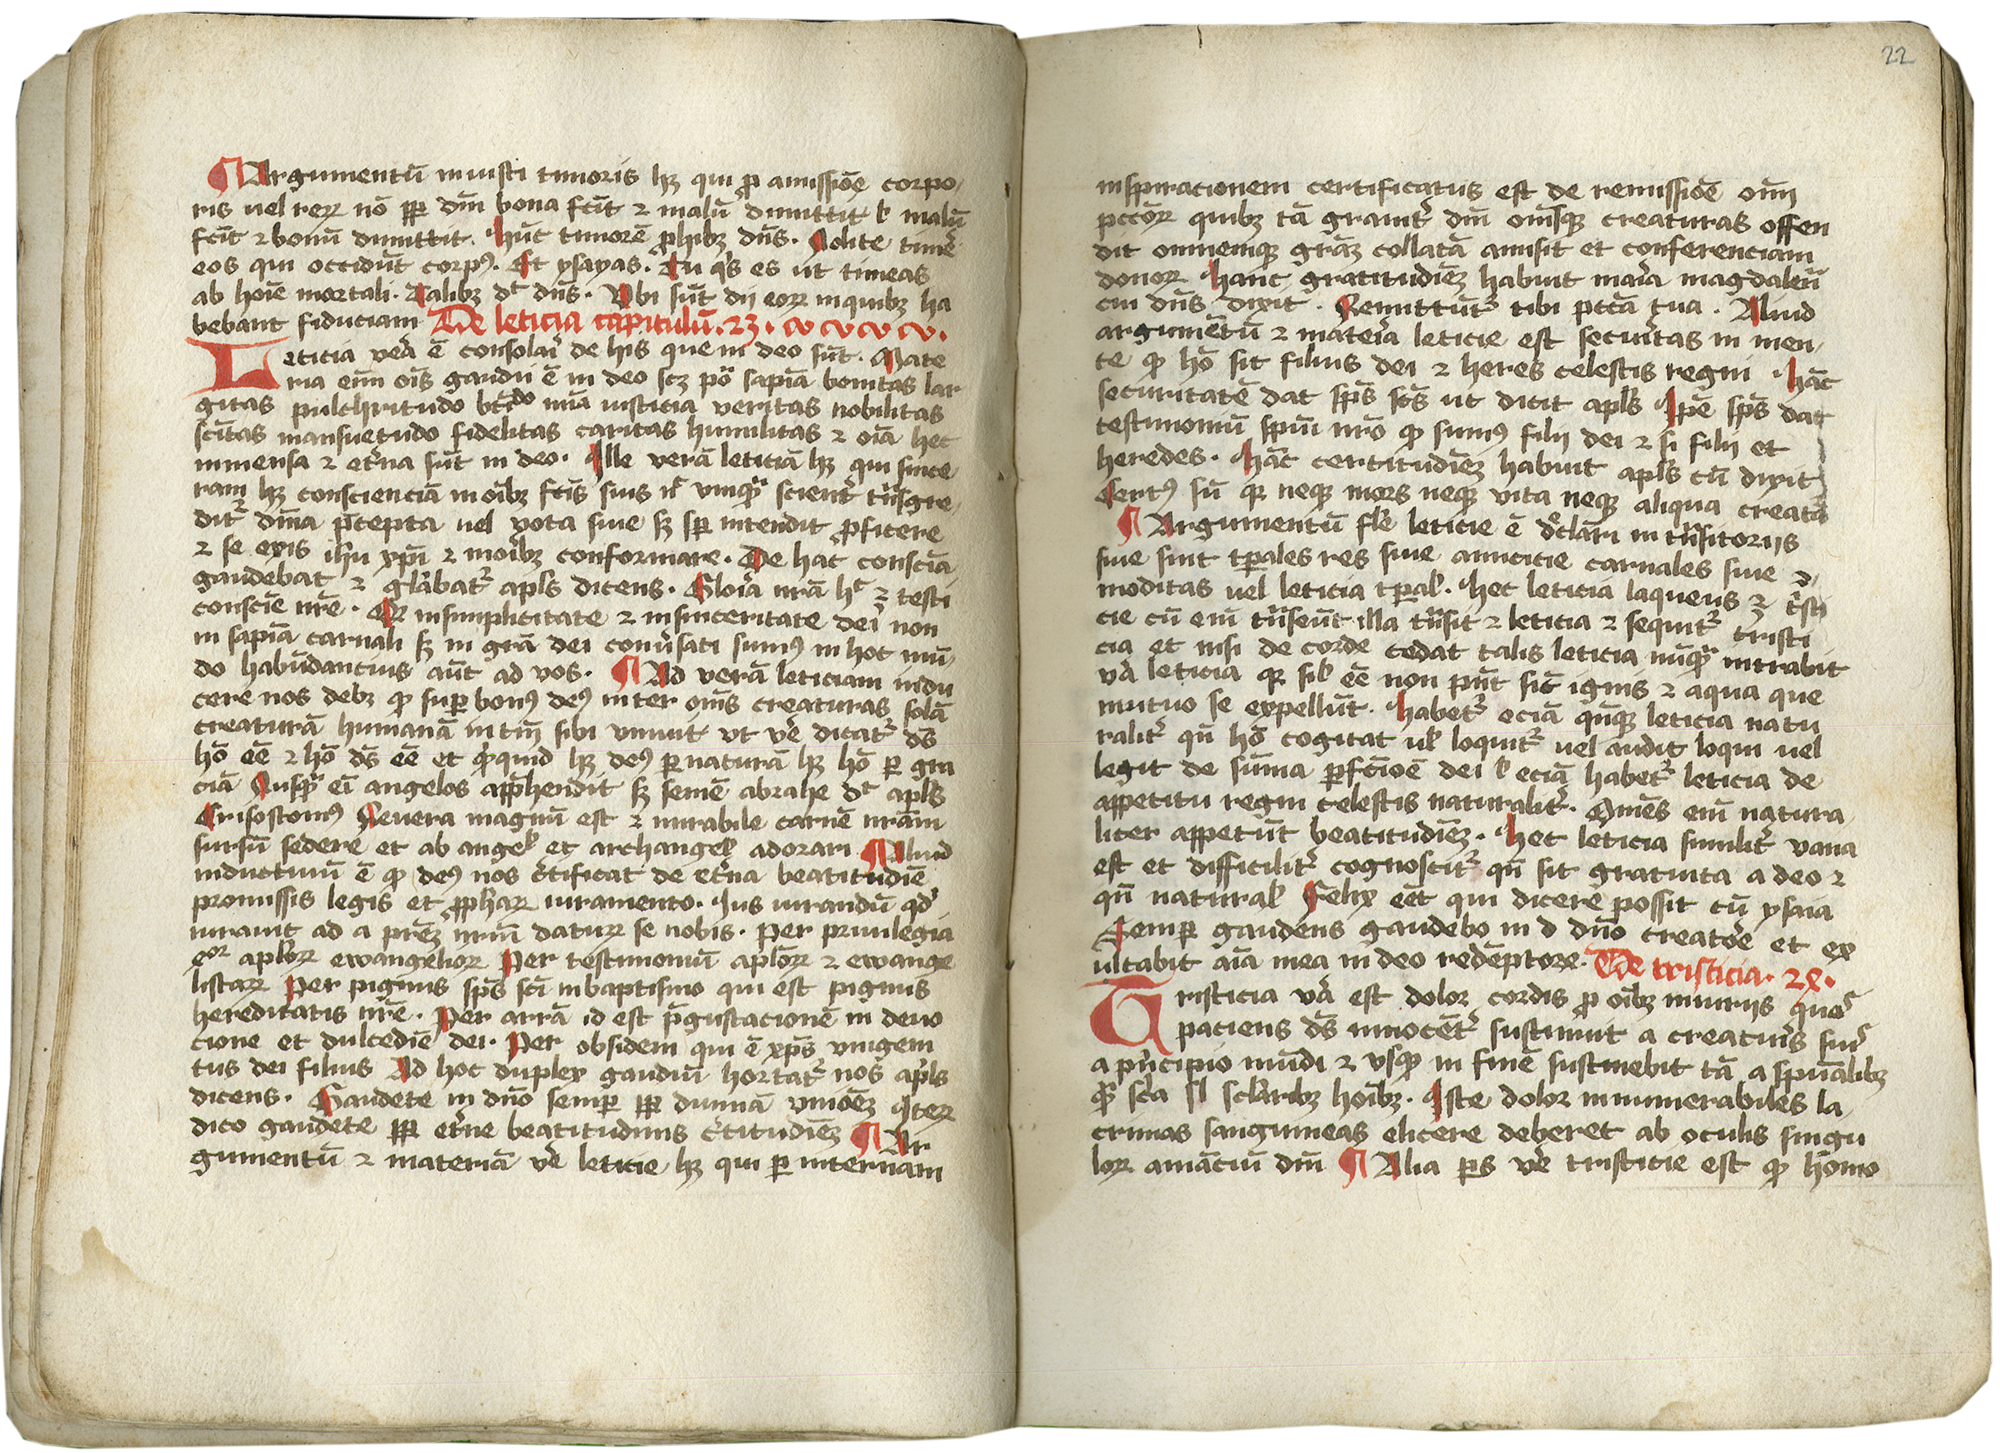 ¶ Argumentū iniusti timoris hꝫ qui ꝓ amissiōe corpo/
ris uel reꝝ nō ꝓꝑ dm̄ bona fc̄it ⁊ malū dimittit ł malū
fc̄it ⁊ bonū dimittit. Hūc timorē ꝓhibꝫ dn̄s. Nolite timē
eos qui occidūt corpꝰ. Et ysayas. Tu qͥs es ut timeas
ab hoīe mortali. Talibꝫ dꝰ dn̄s. Vbi sūt dij eoꝝ in quibꝫ ha
bebant fiduciam De leticia capitulū. 23.
Leticia verā ē consolari de his que in deo sūt. Mate
ria enī oīs gaudij ē in deo scꝫ pō sapīa bonitas lar
gitas pulchritudo btīdo mīa iusticia veritas nobilitas
sc̄itas mansuetudo fidelitas caritas humilitas ⁊ oīa hec
inmensa ⁊ et̓na sūt in deo. Ille verā leticiā hꝫ qui since
ram hꝫ conscienciā in oībꝫ fc̄is suis nͨ vnqͣꝫ scient̓ tͣnsgre
dit̓ dīna p̄cepta uel vota siue sꝫ sꝑ intendit ꝓficere
⁊ se exis ihu xpī ⁊ moribꝫ conformare. De hac consciā
gaudebat ⁊ gl̓abat̓ apl̓s dicens. Gloīa nrā hͨ ē testi
conscīe nrē. Qꝛ in simplicitate ⁊ in sinceritate dei non
in sapīa carnali sꝫ in grā dei conūsati sumꝰ in hoc mū/
do habūdancius aūt ad vos. ¶ Ad verā leticiam indu
cere nos debꝫ ꝙ suꝑ bonꝰ deꝰ inter om̄s creaturas solā
creaturā humanā in tm̄ sibi vniuit vt vē dicat̓ dꝰ
hō eē ⁊ hō dꝰ eē et ꝙͥ quid hꝫ deꝰ ꝑ naturā hꝫ hō ꝑ gra
ciā Nusqͣꝫ eī angelos app̄hendit sꝫ semē abrahe dꝰ apl̓s
Crisostomꝰ Reuera magnū est ⁊ mirabile carnē nrām
sursū sedere et ab angeł et archangeł adorari ¶ Aliud
inductiuū ē ꝙ deꝰ nos c̓tificat de et̓na beatitudiē
promissis legis et ꝓphaꝝ iuramento. Ius iurandū qd̓
iurauit ad a pr̄eꝫ nrm̄ daturꝝ se nobis. Per priuilegia
eoꝝ apl̓oꝝ ewangelioꝝ Per testimoniū apl̓oꝝ ⁊ ewange
listaꝝ Per pignus sps̄ scī in baptismo qui est pignus
hereditatis nr̄e. Per arrā id est p̄gustacionē in deuo
cione et dulcediē dei. Per obsidem qui ē xps̄ vnigeni
tus dei filius Ad hoc duplex gaudiū hortat̓ nos apl̓s
dicens. Gaudete in dn̄o semꝑ ꝓꝑ diuinā vnioēꝫ Iteꝝ
dico gaudete ꝓꝑ et̓ne beatitudinis c̓titudiēꝫ ¶ Ar
gumentū ⁊ materiā vē leticie hꝫ qui ꝑ internam
22
inspiracionem certificatus est de remissiōe om̄
pccōꝝ quibꝫ tā grauit̓ dm̄ om̄sqꝫ creaturas offen
dit omnemqꝫ grāꝫ collatā amisit et conferenciam
donoꝝ Hanc gratitudīeꝫ habuit maīa magdalen̄
cui dn̄s dixit. Remittūt̓ tibi pccā tua. Aliud
argumētū ⁊ mateīa leticie est securitas in men/
te ꝙ hō sit filius dei ⁊ heres celestis regni Hāc
securitatē dat sps̄ sc̄s ut dicit apl̓s Ipē sps̄ dat
testimoniū spūi nrō ꝙ sumꝰ filij dei ⁊ si filij et
heredes. Hāc certitudīeꝫ habuit apl̓s cū dixit
Certꝰ sū qꝛ neqꝫ mors neqꝫ vita neqꝫ aliqua creatā
¶ Argumentū fl̓e leticie ē d̓clāri in tͣnsitorijs
siue sint tꝑales res siue amicicie carnales siue ↄ/
moditas uel leticia tꝑał. Hec leticia laqueus ē tͥsti
cie cū enī tͣnseūt illa tͣnsit ⁊ leticia ⁊ sequit̓ tristi
cia et nisi de corde cedat talis leticia nūqͣꝫ intrabit
vā leticia qꝛ sił eē non pn̄t sic̄ ignis ⁊ aqua que
mutuo se expellūt. Habet̓ eciā qn̄qꝫ leticia natu
ralit̓ qn̄ hō cogitat uł loquit̓ uel audit loqui uel
legit de sūma ꝑfc̄ioē dei ł eciā habet̓ leticia de
appetitu regni celestis naturalit̓. Om̄es enī natura
liter appetūt beatitudiēꝫ. Hec leticia similit̓ vana
est et difficilit̓ cognoscit̓ qn̄ sit gratuita a deo ⁊
qn̄ naturał Felix eēt qui dicere possit cū ysaia
Semꝑ gaudens gaudebo in d dn̄o creatōe et ex
ultabit aīa mea in deo redēptore. De tristicia. 2X.
Tristicia vā est dolor cordis ꝓ oībꝫ iniurijs quaꝫ
paciens dꝰ innocēt̓ sustinuit a creatur̓s suꝫ
a pͥncipio mūdi ⁊ vsqꝫ in finē sustinebit tā a spūalibꝫ
qͣꝫ scl̓aribꝫ hoībꝫ. Iste dolor innumerabiles la/
crimas sanguineas elicere deberet ab oculis singu
loꝝ amāciū dm̄ ¶ Alia ꝑs vē tristicie est ꝙ homo